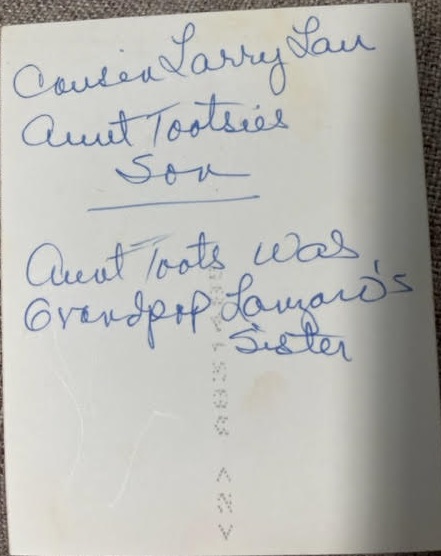 Cousin Larry Lau
Aunt Tootsies
Son
Aunt Toots was
Grandpop
Sister